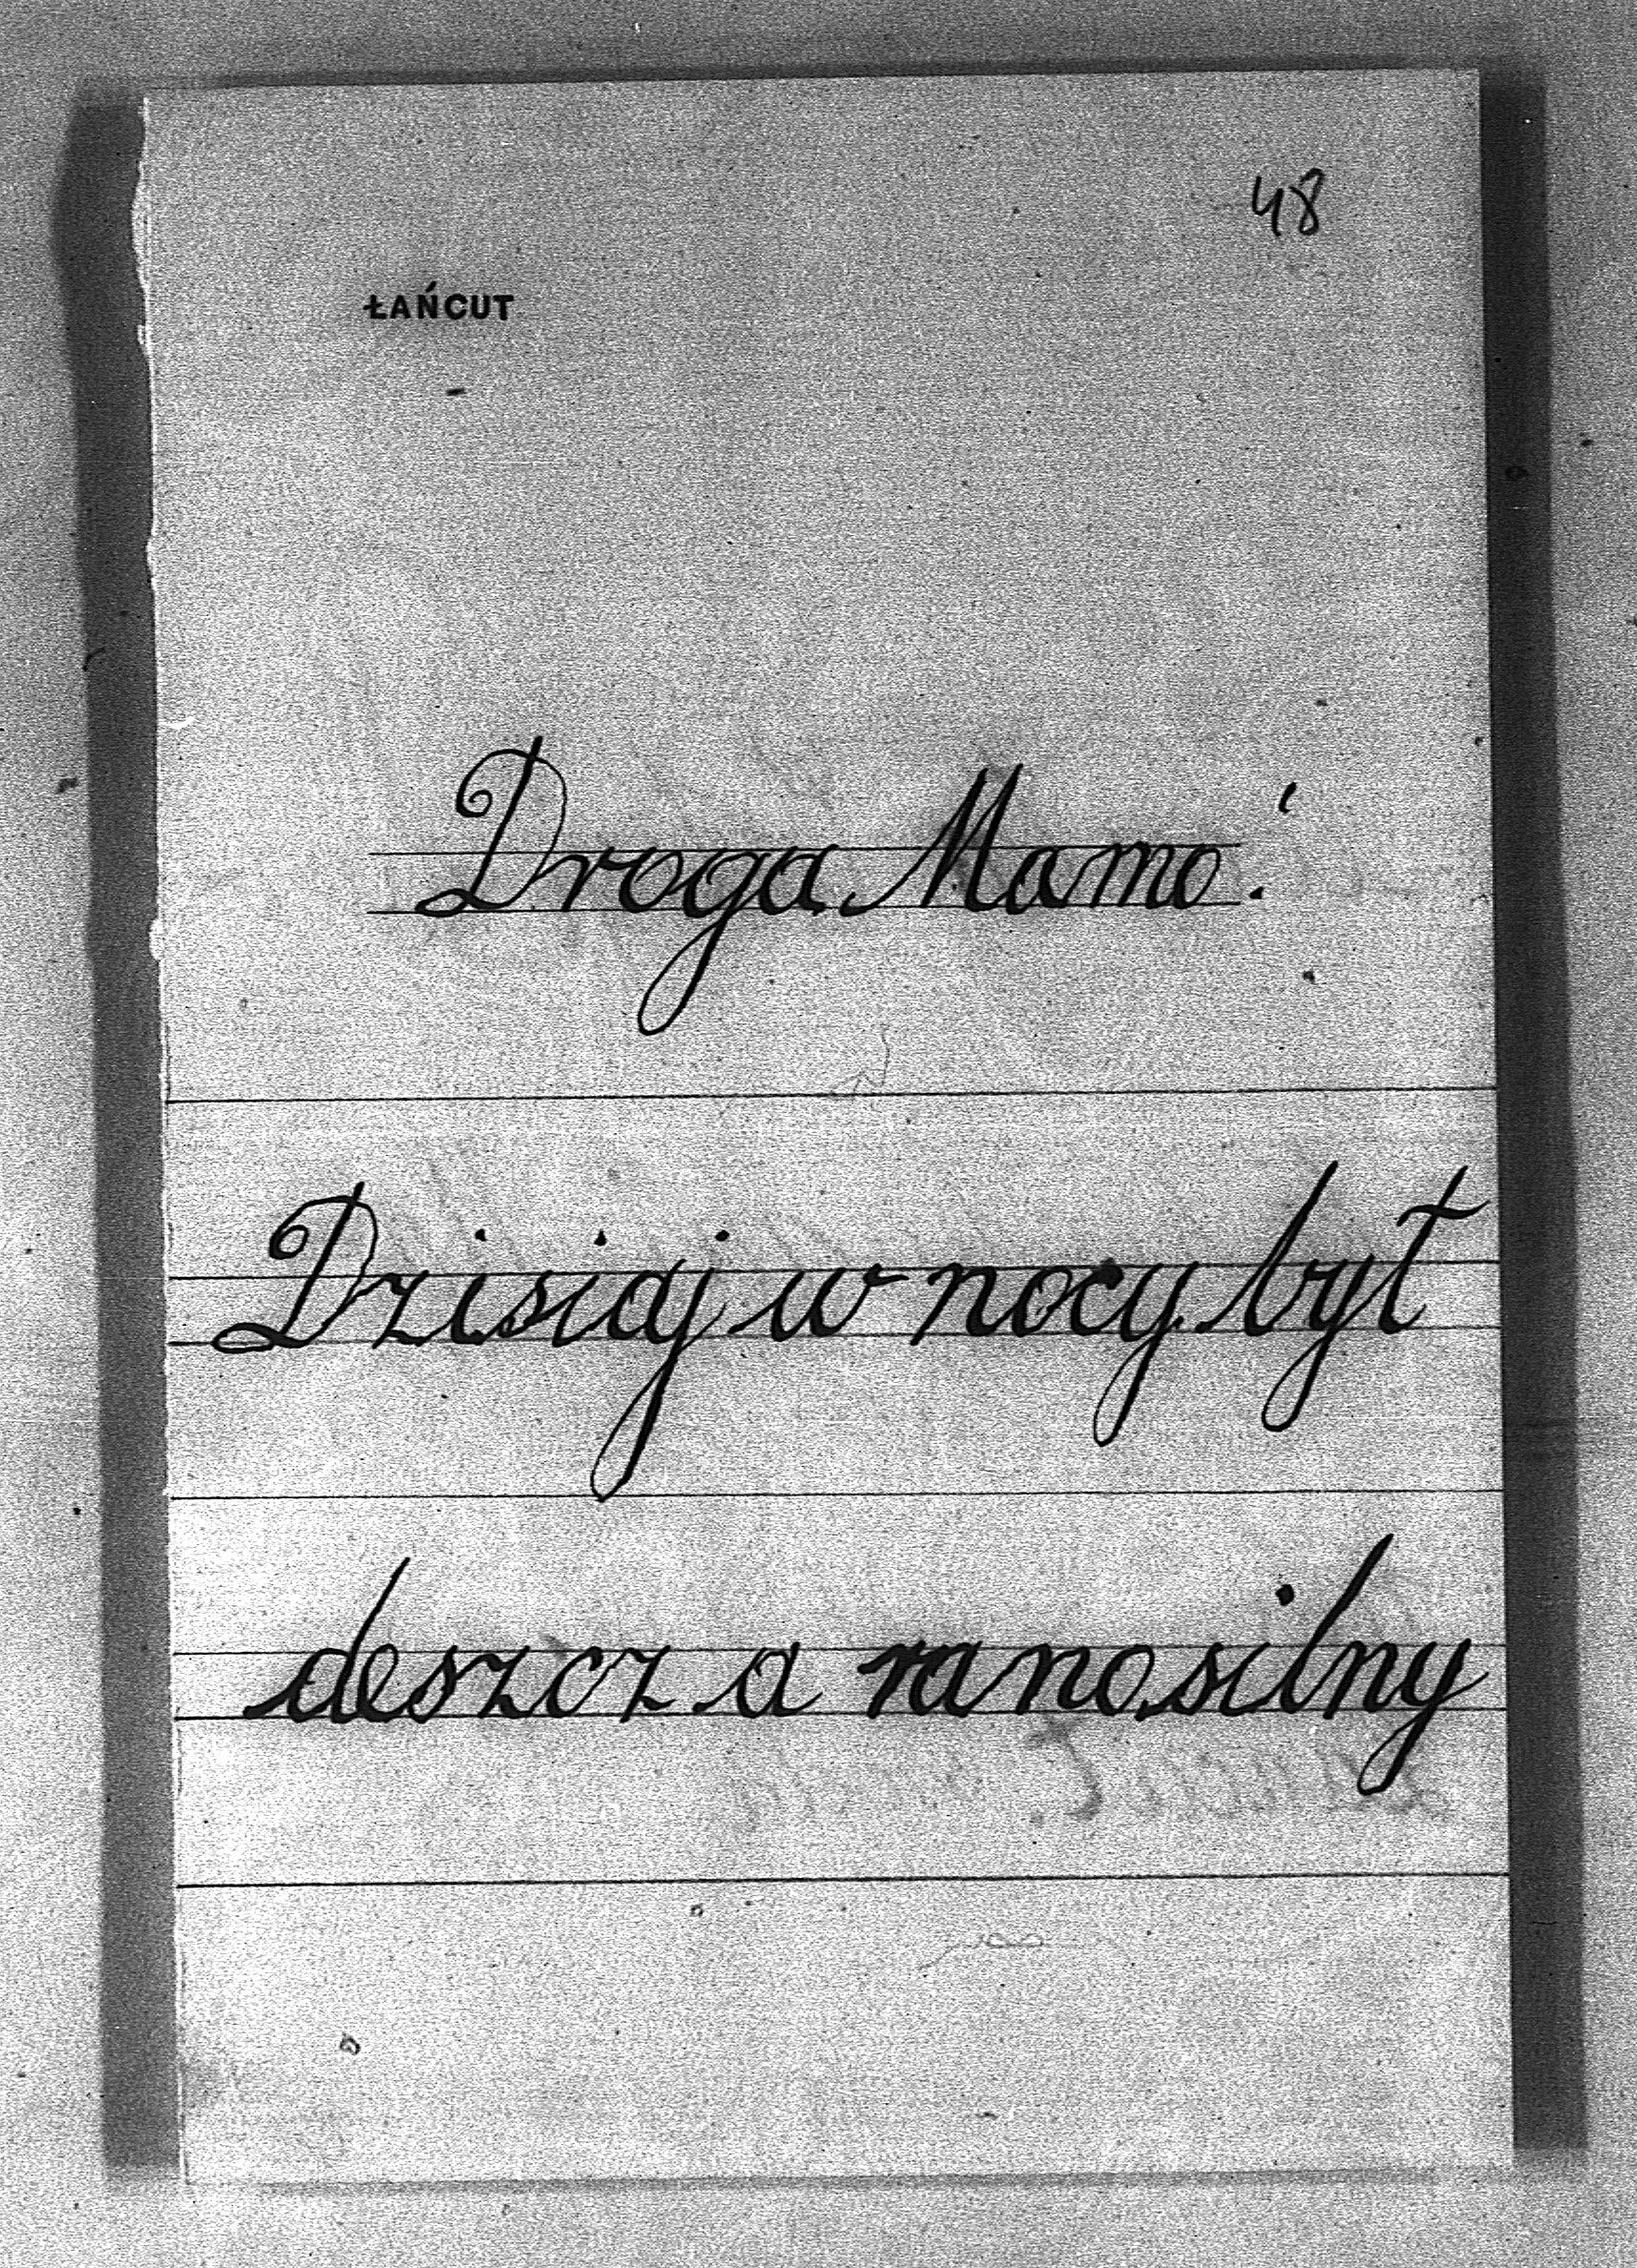 48
ŁAŃCUT
Droga Mamo!
Dzisiaj w nocy był
deszcz a rano silny